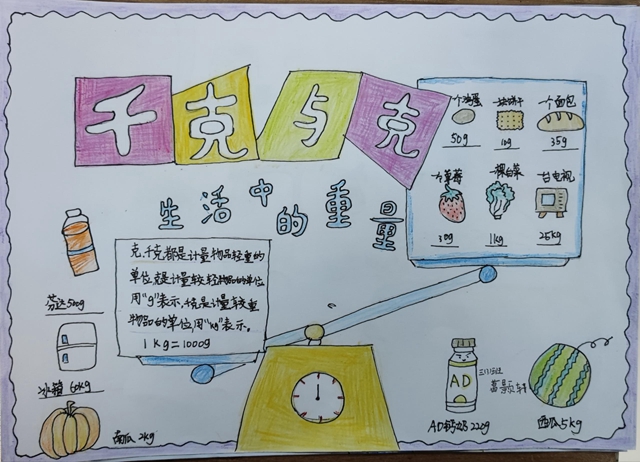 千克与克
生活中的重量
一个鸡蛋
50g
一块饼干
10g
一个面包
35g
一个草莓
30g
一棵白菜
1kg
一台电视
25kg
克、千克都是计量物品轻重的
单位,克是计量较轻物品的单位
用"g"表示,千克是计量较重
物品的单位用"kg"表示。
1kg=1000g
芬达500g
冰箱 60kg
南瓜 2kg
AD
AD钙奶 220g
西瓜5kg